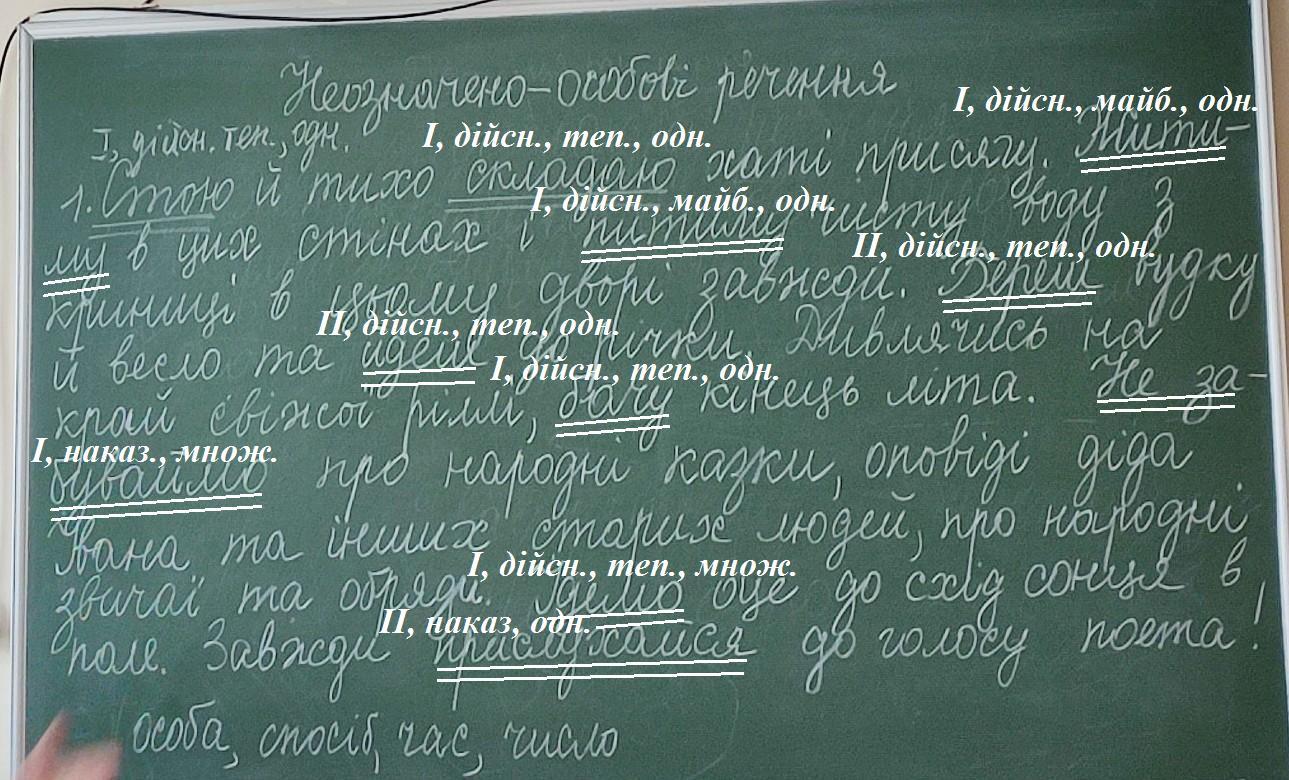 Неозначено-особові речення
I, дійсн., майб., одн.
I, дійсн. теп., одн.
I, дійсн., теп., одн.
1. Стою й тихо складаю хаті присягу. Жити-
I, дійсн., майб., одн.
му в цих стінах і питиму чисту воду з
II, дійсн., теп., одн.
криниці в цьому дворі завжди. Береш вудку
II, дійсн., теп., одн.
й весло та йдеш до річки. Дивлячись на
I, дійсн., теп., одн.
край свіжої ріллі, бачу кінець літа. Не за-
I, наказ., множ.
буваймо про народні казки, оповіді діда
Івана та інших старих людей, про народні
I, дійсн., теп., множ.
звичаї та обряди. Йдемо оце до схід сонця в
II, наказ, одн.
поле. Завжди прислухайся до голосу поета!
особа, спосіб, час, число